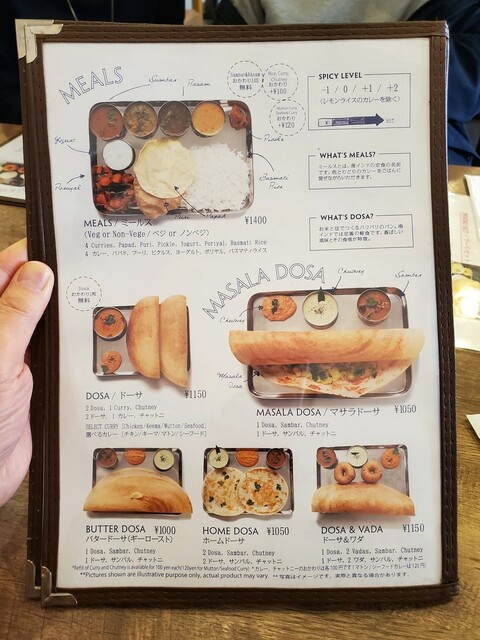 MEALS
Sambar
Rasam
Sambar&Rasam
おかわり1回
無料
Rice, Curry,
Chutney
おかわり
+¥100
Mutton Curry
Seafood Curry
おかわり
+¥120
SPICY LEVEL
-1 / 0 / +1 / +2
(レモンライスのカレーを除く)
HOT
Yogurt
Poriyal
Puri
Papad
Pickle
Basmati
Rice
WHAT'S MEALS?
WHAT'S DOSA?
MEALS / ミールス
¥1400
(Veg or Non-Vege / ベジ or ノンベジ)
4 Curries, Papad, Puri, Pickle, Yogurt, Poriyal, Basmati Rice
4 カレー, パパド, プーリ, ピクルス, ヨーグルト, ポリヤル, バスマティライス
Dosa
おかわり1枚
無料
MASALA DOSA
Chutney
Chutney
Sambar
Masala
Dosa
DOSA / ドーサ
¥1150
2 Dosa, 1 Curry, Chutney
2 ドーサ, 1 カレー, チャットニ
SELECT CURRY (Chicken/Keema/Mutton/Seafood)
選べるカレー (チキン/キーマ/マトン/シーフード)
MASALA DOSA / マサラドーサ
¥1050
1 Dosa, Sambar, Chutney
1 ドーサ, サンバル, チャットニ
BUTTER DOSA
¥1000
バタードーサ(ギーロースト)
1 Dosa, Sambar, Chutney
1 ドーサ, サンバル, チャットニ
HOME DOSA
¥1050
ホームドーサ
2 Dosa, Sambar, Chutney
2 ドーサ, サンバル, チャットニ
DOSA & VADA
¥1150
ドーサ&ワダ
1 Dosa, 2 Vadas, Sambar, Chutney
1 ドーサ, 2 ワダ, サンバル, チャットニ
*Refill of Curry and Chutney is available for 100 yen each(120yen for Mutton/Seafood Curry) * カレー, チャットニーのおかわりは各100円です (マトン/シーフードカレーは120円)
**Pictures shown are illustrative purpose only, actual product may vary. ** 写真はイメージです。実際と異なる場合があります.